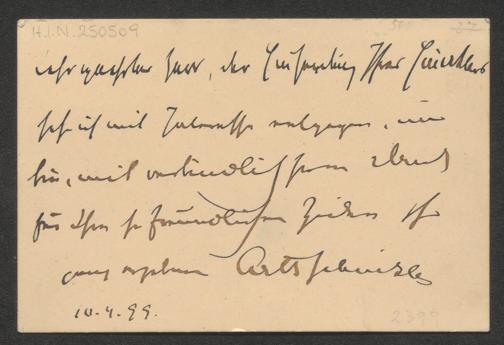 H.I.N. 250509
sehr geehrter Herr, der Einsendung Ihres
seh ich mit Interesse entgegen, und
bin, mit verbindlichstem Dank
für Ihre so freundlichen Zeilen Ihr
ganz ergebener Arth Schnitzler
10.4.99.
2399